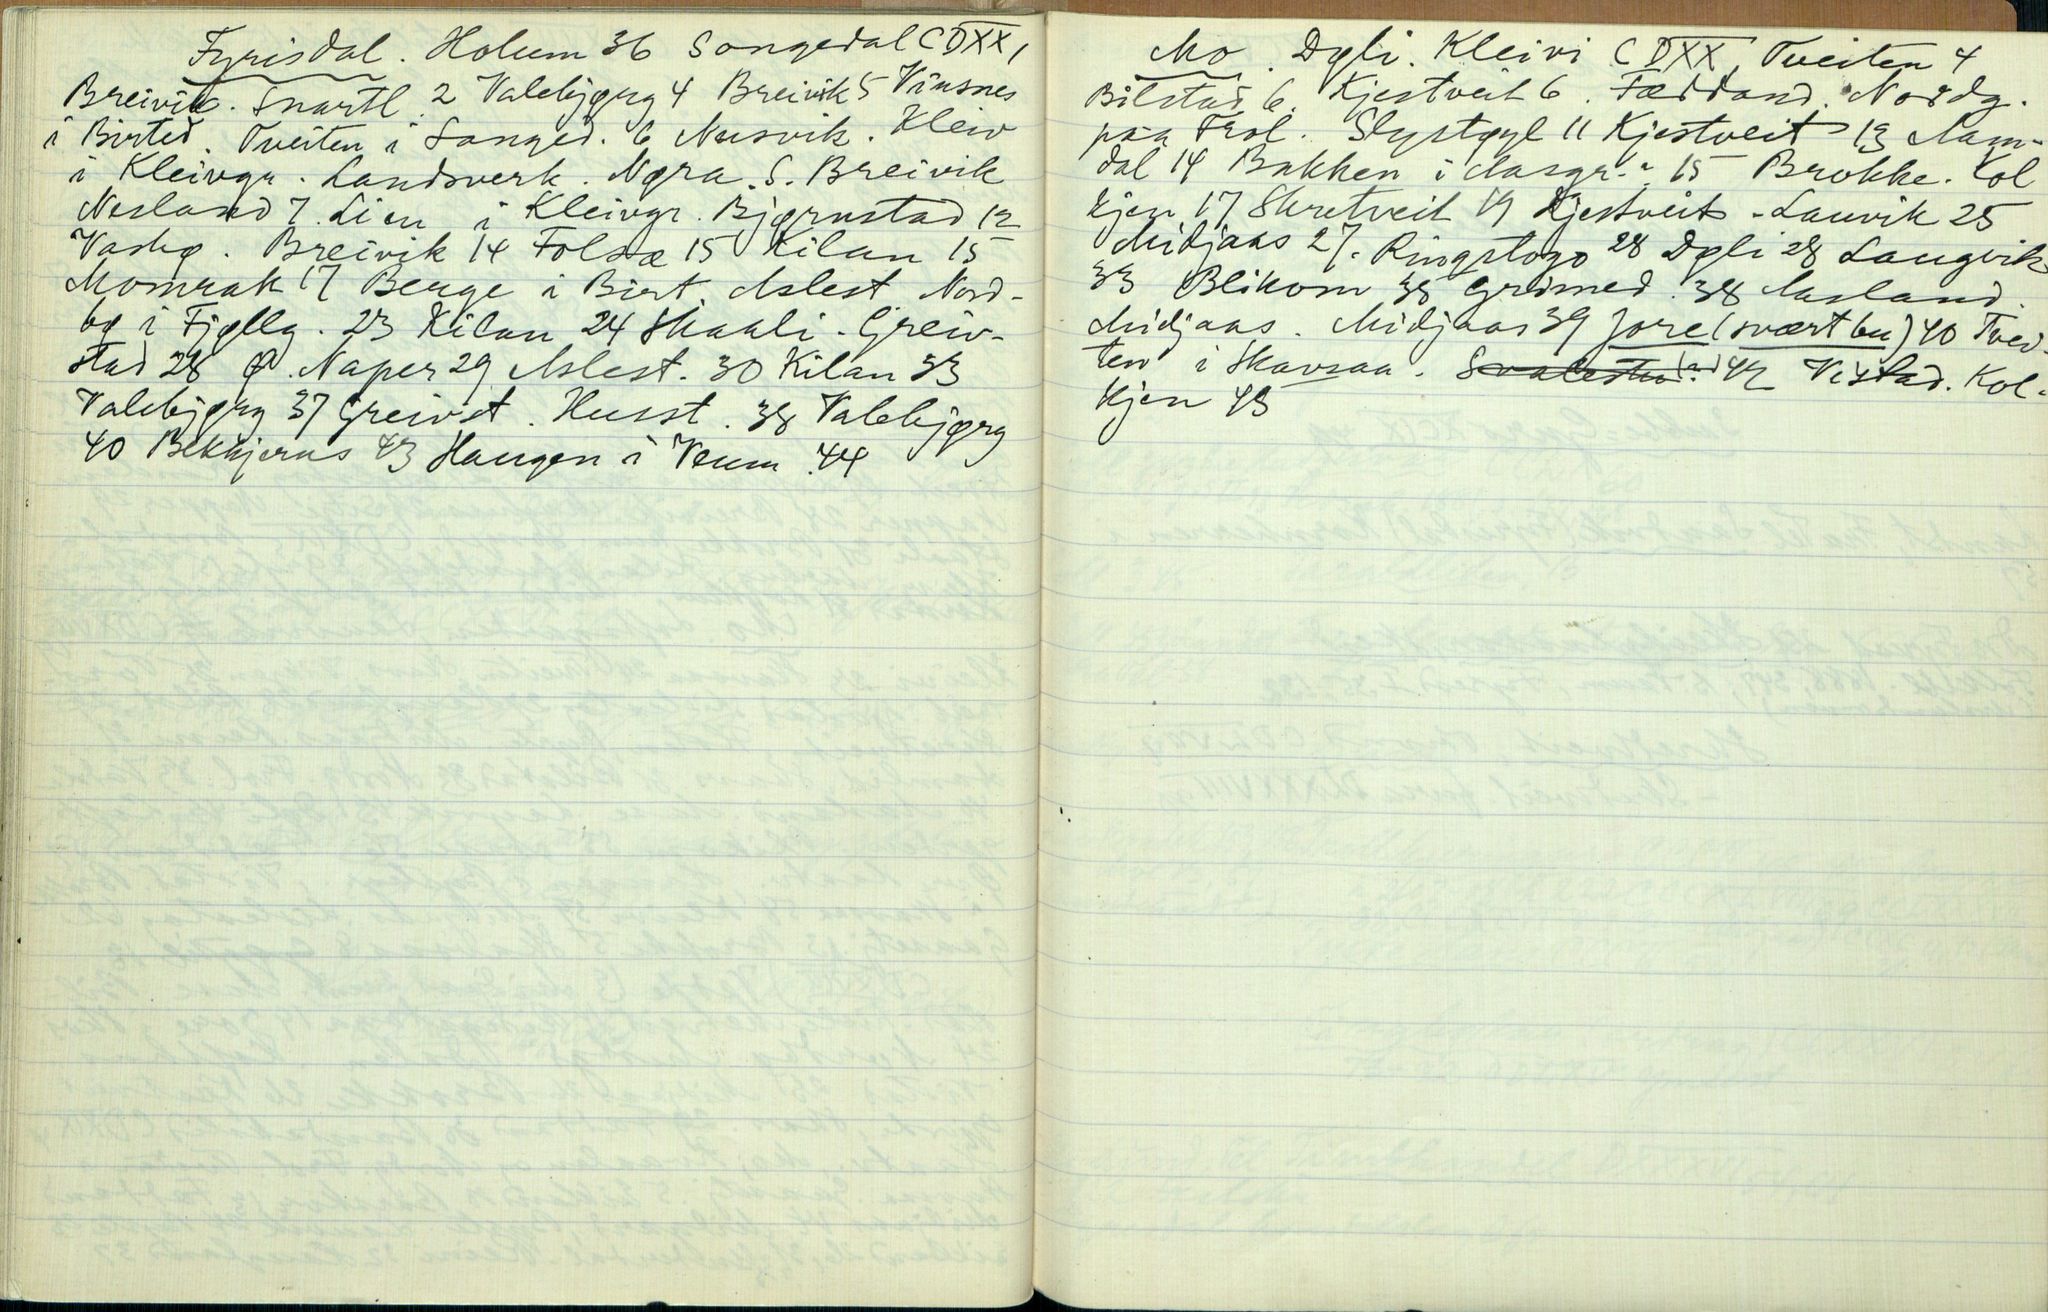 Fyrisdal. Holum 36 Songedal CDXX,
Breivik. Snartl. 2 Valebjørg 4 Breivik 5 Vinsnes
i Birted. Tveiten i Songed. 6 Nesvik. Kleiv
i Kleivgr. Landsverk. Nøra. S. Breivik
Nesland 7. Lien i Kleivgr. Bjørnstad 12
Vasbø. Breivik 14 Folsæ 15 Kilan 15
Momrak 17 Berge i Birt. Aslest. Nord-
bø i Fjellg. 23 Kilan 24 Skaali. Greiv-
stad 28 Ø. Naper 29 Aslest. 30 Kilan 33
Valebjørg 37 Greivst. Husst. 38 Valebjørg
40 Bekkjerns 43 Haugen i Veum. 44
Mo. Døli. Kleivi CDXX, Tveiten 4
Bilstad 6. Kjestveit 6. Fæddand. Nordg.
paa Trol. Slystøyl 11 Kjestveit 13 Nam-
dal 14 Bakken i Aasgr. 15 Brokke. Kol
kjen 17 Skretveit 19 Kjestveit. Lauvik 25
Midjaas 27. Ringstogo 28 Døli 28 Laugvik
33 Blikom 38 Grimed. 38 Aasland.
Midjaas. Midjaas 39 Jore (svært bu) 40 Tvei-
ten i Skavsaa. 42 Vistad. Kol-
kjen 43